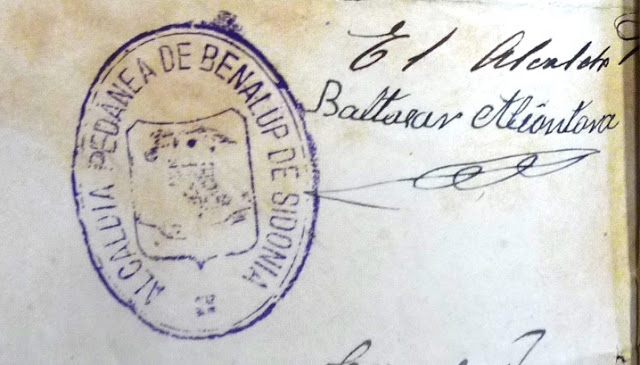 ALCALDIA PEDÁNEA DE BENALUP DE SIDONIA
El Alcalde P
Baltasar Alcántara